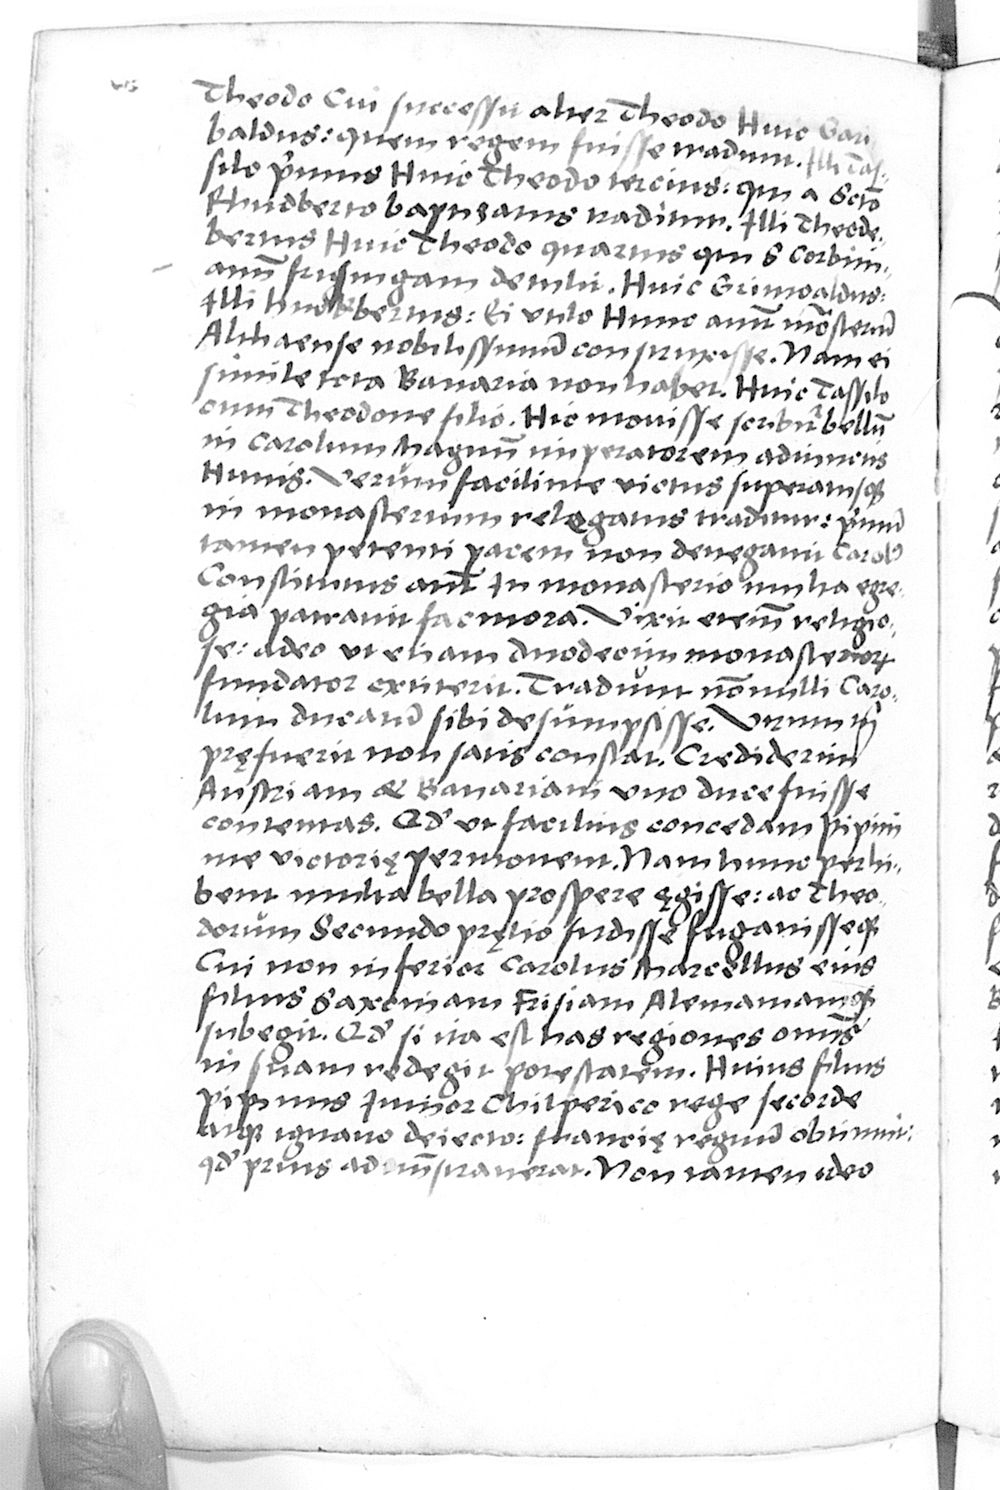 Theodo Cui successit alter Theodo Huic Gari
baldus: quem regem fuisse tradunt. Illi Tas-
silo p̃imus Huic Theodo tercius: qui a Sctõ
Rhudberto baptizatus traditur. Illi Theode-
bertus Huic Theodo quartus qui S Corbini-
anũ frisingam detulit. Huic Grimoaldus:
Illi huckbertus: Ei Utilo Hunc aiunt mõsteriũ
Althaense nobilissimũ construxisse. Nam ei
simile tota Bauaria non habet. Huic Tassilo
cum Theodone filio. Hic mouisse scribit̃ bellũ
in Carolum Magnũ imperatorem adiunctis
Hunis. Verum facilime victus superatusq̃
in monasterium relęgatus traditur: p̃imũ
tamen petenti pacem non denegauit Carol9
Constitutus aut̃ In monasterio multa egre-
gia patrauit facinora. Vixit etenĩ religio-
se: adeo ut etiam duodecim monasterioꝝ
fundator extiterit. Tradunt nõnulli Caro-
lum ducatũ sibi desumpsisse. Utrum ĩ
pręfuerit non satis constat. Crediderim
Austriam & Bauariam uno duce fuisse
contentas. Qđ ut facilius concedam Pipini
me victorię permouent. Nam hunc perhi-
bent multa bella prospere ęgisse: ac Theo-
dorum Secundo pręlio fudisse fugauisseq̃
Cui non inferior Carolus Marcellus eius
filius Saxoniam Frisiam Alemaniamq̃
subegit. Qđ si ita est has regiones omẽs
in suam redegit potestatem. Huius filius
Pipinus Iunior Chilperico rege secorde
atq̃ ignauo deiecto: francię regnũ obtinuit:
qđ prius adminĩstrauerat. Non tamen ideo